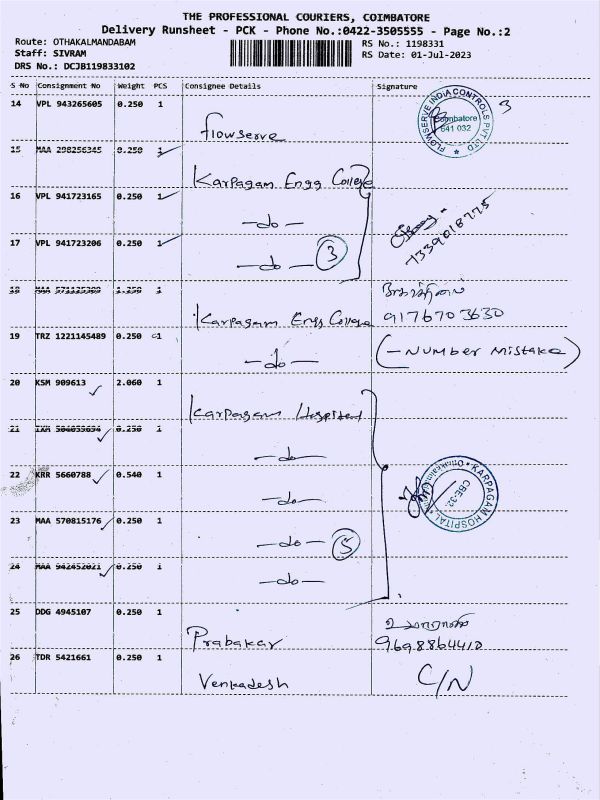 THE PROFESSIONAL COURIERS, COIMBATORE
Delivery Runsheet - PCK - Phone No.:0422-3505555 - Page No.:2
Route: OTHAKALMANDABAM
RS No.: 1198331
Staff: SIVRAM
RS Date: 01-Jul-2023
DRS No.: DCJB119833102
S No Consignment No Weight PCS Consignee Details Signature
14 VPL 943265605 0.250 1 flowserve 3
FLOWSERVE INDIA CONTROLS PVT LTD
Coimbatore
641 032
15 MAA 298256345 0.250 1 Karpagam Engg College
16 VPL 941723165 0.250 1 -do-
17 VPL 941723206 0.250 1 -do- 3
7339018775
18 MAA 1.350 1 Karpagam Engg College
9176703630
19 TRZ 1221145489 0.250 1 -do- (-Number Mistake)
20 KSM 909613 2.060 1 Karpagam Hospital
21 0.250 1 -do-
22 KRR 5660788 0.540 1 -do-
KARPAGAM HOSPITAL
CBE-32.
23 MAA 570815176 0.250 1 -do- 5
24 MAA 942452021 0.250 1 -do-
25 DDG 4945107 0.250 1 Prabakar
9698864410
26 TDR 5421661 0.250 1 Venkadesh C/N